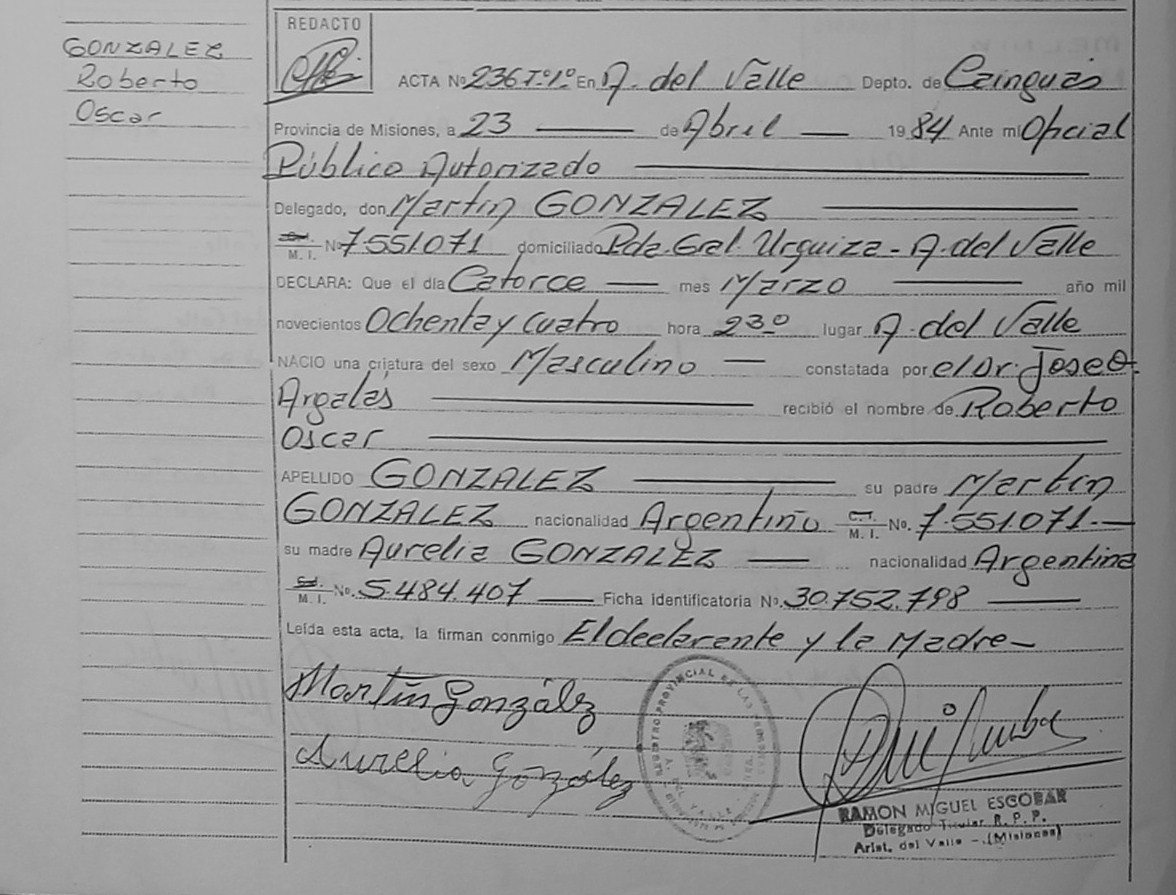 GONZALEZ
Roberto
Oscar
REDACTO
ACTA Nº 236 Tº1º En A. del Valle Depto. de Cainguás
Provincia de Misiones, a 23 de Abril 1984 Ante mi Oficial
Público Autorizado
Delegado, don Martín GONZALEZ
M. I. Nº 7.551.071 domiciliado Pda. Gral. Urquiza - A. del Valle
DECLARA: Que el día Catorce mes Marzo año mil
novecientos Ochenta y Cuatro hora 23º lugar A. del Valle
NACIO una criatura del sexo Masculino constatada por el Dr. Jose O.
Argalás recibió el nombre de Roberto
Oscar
APELLIDO GONZALEZ su padre Martín
GONZALEZ nacionalidad Argentino C.I. M. I. No. 7.551.071.-
su madre Aurelia GONZALEZ nacionalidad Argentina
M. I. No. 5.484.407 Ficha identificatoria No. 30.752.798
Leída esta acta, la firman conmigo El declarante y la Madre-
Martín González
Aurelia González
REGISTRO PROVINCIAL DE LAS PERSONAS
RAMON MIGUEL ESCOBAR
Delegado Titular R. P. P.
Arist. del Valle - (Misiones)